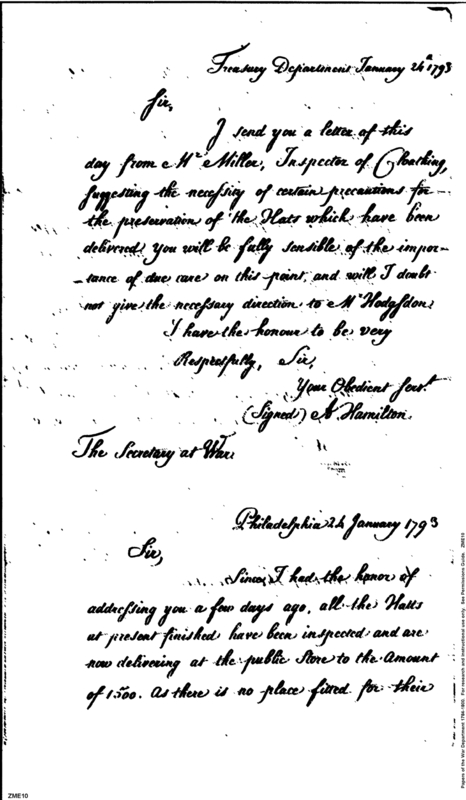 Treasury Department January 24th 1793
Sir,
I send you a letter of this
day from Mr Miller, Inspector of Cloathing,
suggesting the necessity of certain precautions for
the preservation of the Hats which have been
delivered you will be fully sensible of the impor-
-tance of due care on this point, and will I doubt
not give the necessary direction to Mr Hodgsdon.
I have the honour to be very
Respectfully, Sir,
Your Obedient Servt
(Signed) A Hamilton.
The Secretary at War.
Philadelphia 24 January 1793
Sir,
Since I had the honor of
addressing you a few days ago, all the Hatts
at present finished have been inspected and are
now delivering at the public Store to the Amount
of 1500. As there is no place fitted for their
Papers of the War Department 1784-1800. For research and instructional use only. See Permissions Guide. ZME10
ZME10